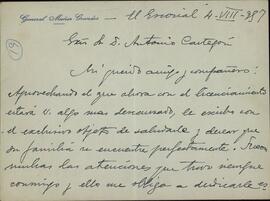 General Muñoz Grandes - El Escorial 4-VIII-937
(3)
Sr. D. Antonio Castejón
Mi querido amigo y compañero:
Aprovechando el que ahora con el licenciamiento
estará V. algo mas descansado, le escribo con
el exclusivo objeto de saludarle y decirle que
su familia se encuentra perfectamente.
muchas las atenciones que tuvo siempre
conmigo y ello me obliga a dedicarle